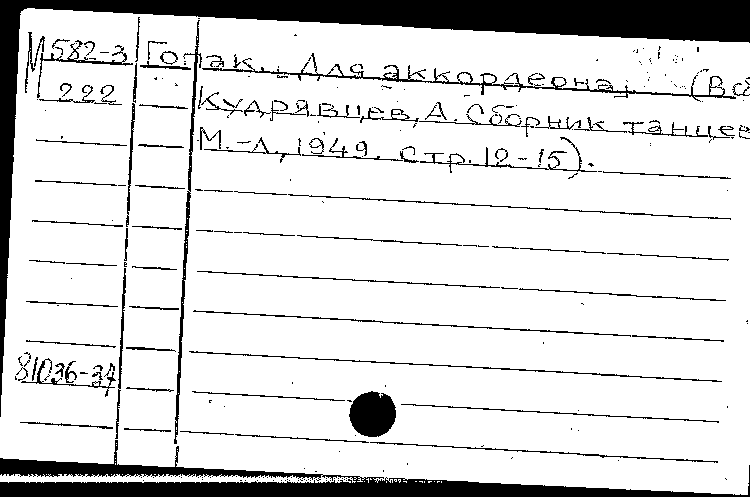 М 582-3 Гопак. Для аккордеона. (В сб
222 Кудрявцев, А. Сборник танцев
М.-Л., 1949. стр. 12-15).
81036-37